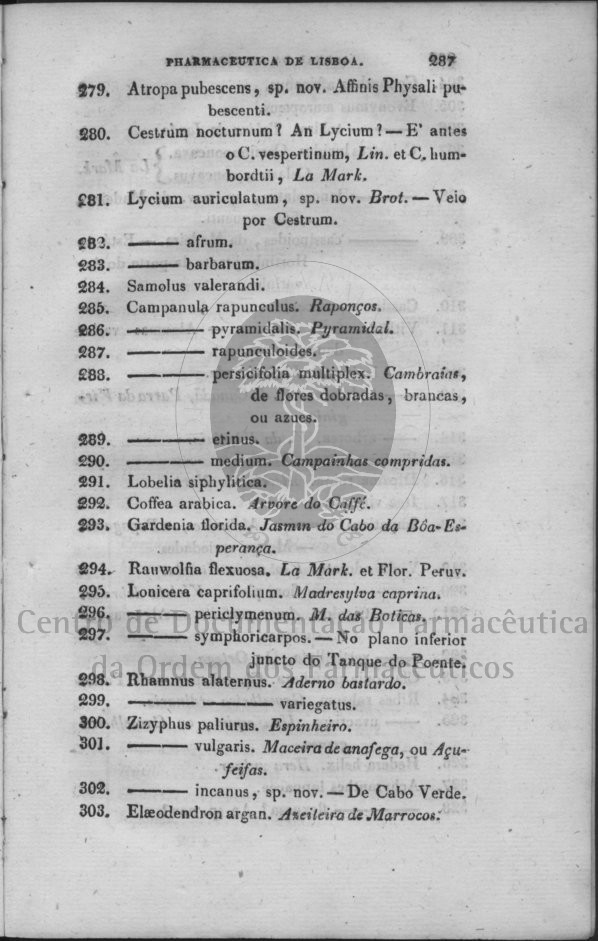 PHARMACEUTICA DE LISBOA. 287
279. Atropa pubescens, sp. nov. Affinis Physali pu-
bescenti.
280. Cestrum nocturnum? An Lycium? — E' antes
o C. vespertinum, Lin. et C. hum-
bordtii, La Mark.
281. Lycium auriculatum, sp. nov. Brot. — Veio
por Cestrum.
282. ——— afrum.
283. ——— barbarum.
284. Samolus valerandi.
285. Campanula rapunculus. Raponços.
286. ——— pyramidalis. Pyramidal.
287. ——— rapunculoides.
288. ——— persicifolia multiplex. Cambraias,
de flores dobradas, brancas,
ou azues.
289. ——— erinus.
290. ——— medium. Campainhas compridas.
291. Lobelia siphylitica.
292. Coffea arabica. Arvore do Caffé.
293. Gardenia florida. Jasmin do Cabo da Bôa-Es-
perança.
294. Rauwolfia flexuosa. La Mark. et Flor. Peruv.
295. Lonicera caprifolium. Madresylva caprina.
296. ——— periclymenum. M. das Boticas.
297. ——— symphoricarpos. — No plano inferior
juncto do Tanque do Poente.
298. Rhamnus alaternus. Aderno bastardo.
299. ——— ——— variegatus.
300. Zizyphus paliurus. Espinheiro.
301. ——— vulgaris. Maceira de anafega, ou Açu-
feifas.
302. ——— incanus, sp. nov. — De Cabo Verde.
303. Elæodendron argan. Azeiteira de Marrocos.
Centro de Documentação Farmacêutica
da Ordem dos Farmacêuticos